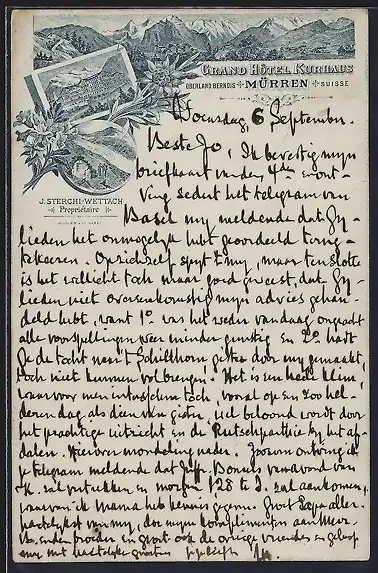 GRAND HÔTEL KURHAUS
OBERLAND BERNOIS MÜRREN SUISSE
J. STERCHI-WETTACH
Propriétaire
Woensdag 6 September.
Beste Jo, Ik bevestig mijn
briefkaart van den 4den en ont-
ving sedert het telegram van
Basel my meldende dat Gy-
lieden het onmogelyk hebt geoordeeld terug-
tekeeren. Op zich zelf spyt 't my, maar tenslotte
is het wellicht toch maar goed geweest, dat Gy-
lieden niet overeenkomstig myn advies gehan-
deld hebt, want 1o was het weder vandaag ongeacht
alle voorspellingen weer minder gunstig en 2o hadt
Je de tocht naar 't Schilthorn, gister door my gemaakt,
toch niet kunnen volbrengen. Het is een heele klim,
waarvoor men intusschen toch, vooral op een zoo hel-
deren dag als dien van gister, veel beloond wordt door
het prachtige uitzicht en de Rutschparthie by het af-
dalen. Hierover mondeling nader. Zooeven ontving ik
je telegram meldende dat Juffr. vanavond van
zal vertrekken en morgen 128 te zal aankomen,
waarvan ik Mama heb kennis gegeven. Groet Papa aller-
hartelykst van my, doe myn komplimenten aan Mevr.
en groet ook de overige vrienden en geloof
me met hartelyke groeten